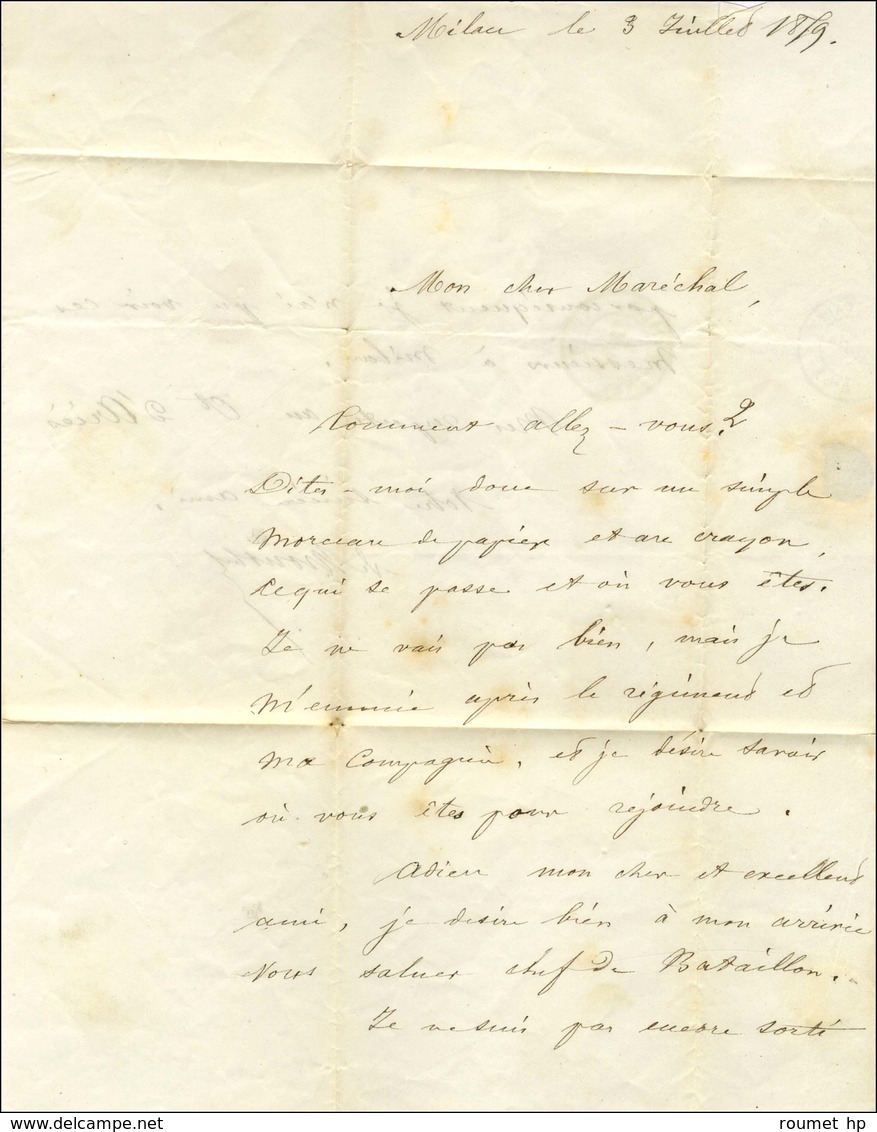 Milan le 3 Juillet 1859.
Mon cher Maréchal,
Comment allez-vous?
Dites-moi donc sur un simple
morceau de papier et au crayon,
ce qui se passe et où vous êtes.
Je ne vais pas bien, mais je
m'ennuie après le régiment et
ma Compagnie, et je désire savoir
où vous êtes pour rejoindre.
Adieu mon cher et excellent
ami, je desire bien à mon arrivée
vous saluer chef de Bataillon.
Je ne suis pas encore sorti
roumet hp